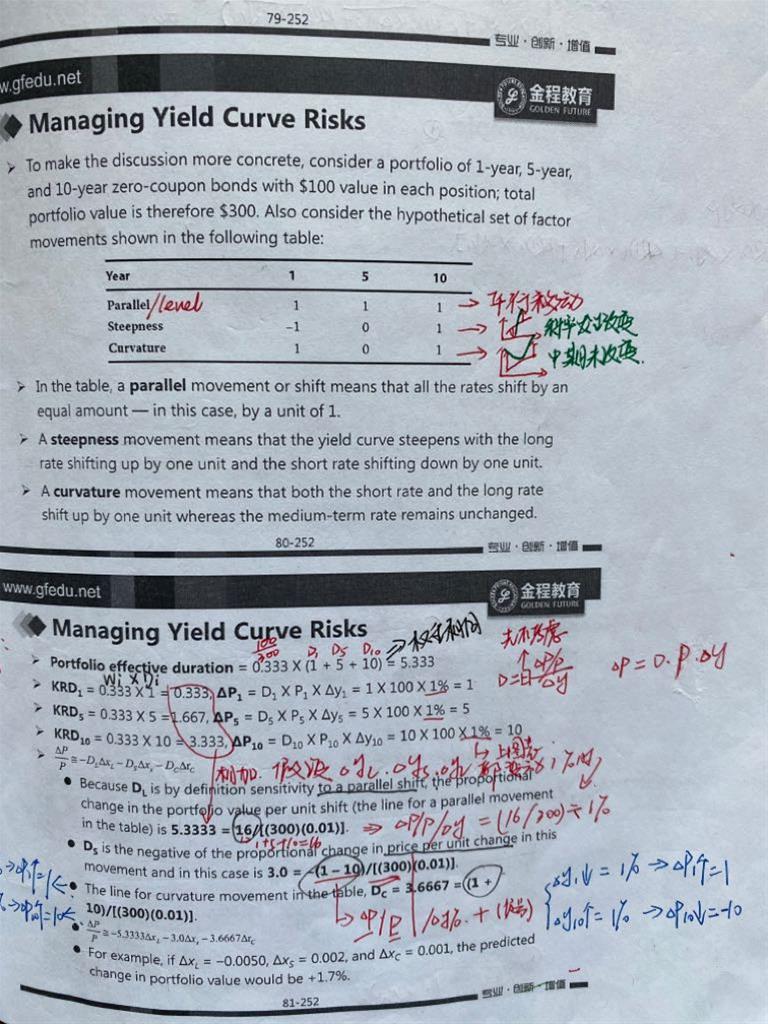 79-252
专业·创新·增值
w.gfedu.net
金程教育
GOLDEN FUTURE
Managing Yield Curve Risks
➢ To make the discussion more concrete, consider a portfolio of 1-year, 5-year,
and 10-year zero-coupon bonds with $100 value in each position; total
portfolio value is therefore $300. Also consider the hypothetical set of factor
movements shown in the following table:
Year 1 5 10
Parallel/level 1 1 1 → 平行移动
Steepness -1 0 1 → 斜率发生改变
Curvature 1 0 1 → 中期未改变.
➢ In the table, a parallel movement or shift means that all the rates shift by an
equal amount — in this case, by a unit of 1.
➢ A steepness movement means that the yield curve steepens with the long
rate shifting up by one unit and the short rate shifting down by one unit.
➢ A curvature movement means that both the short rate and the long rate
shift up by one unit whereas the medium-term rate remains unchanged.
80-252
专业·创新·增值
www.gfedu.net
金程教育
GOLDEN FUTURE
Managing Yield Curve Risks
100/300 D₁ D₅ D₁₀ ⇒ 权重相同
➢ Portfolio effective duration = 0.333 X (1 + 5 + 10) = 5.333
Wi x Di
➢ KRD₁ = 0.333 X 1 = 0.333, ΔP₁ = D₁ X P₁ X Δy₁ = 1 X 100 X 1% = 1
ΔP = D.P.Δy
➢ KRD₅ = 0.333 X 5 = 1.667, ΔP₅ = D₅ X P₅ X Δy₅ = 5 X 100 X 1% = 5
➢ KRD₁₀ = 0.333 X 10 = 3.333, ΔP₁₀ = D₁₀ X P₁₀ X Δy₁₀ = 10 X 100 X 1% = 10
➢ ΔP/P ≅ -D_LΔx_L - D_SΔx_s - D_CΔx_C
相加. 假设 Δy_L. Δy_S. Δy_C
● Because D_L is by definition sensitivity to a parallel shift, the proportional
change in the portfolio value per unit shift (the line for a parallel movement
in the table) is 5.3333 = 16/[(300)(0.01)]. ⇒ ΔP/P/Δy = (16/300)÷1%
1+5+10=16
● D_S is the negative of the proportional change in price per unit change in this
movement and in this case is 3.0 = -(1 - 10)/[(300)(0.01)].
● The line for curvature movement in the table, D_C = 3.6667 = (1 +
10)/[(300)(0.01)].
Δy₁↓ = 1% → ΔP₁↑ = 1
Δy₁₀↑ = 1% → ΔP₁₀↓ = -10
● ΔP/P ≅ -5.3333Δx_L - 3.0Δx_s - 3.6667Δx_C
● For example, if Δx_L = -0.0050, Δx_S = 0.002, and Δx_C = 0.001, the predicted
change in portfolio value would be +1.7%.
81-252
专业·创新·增值